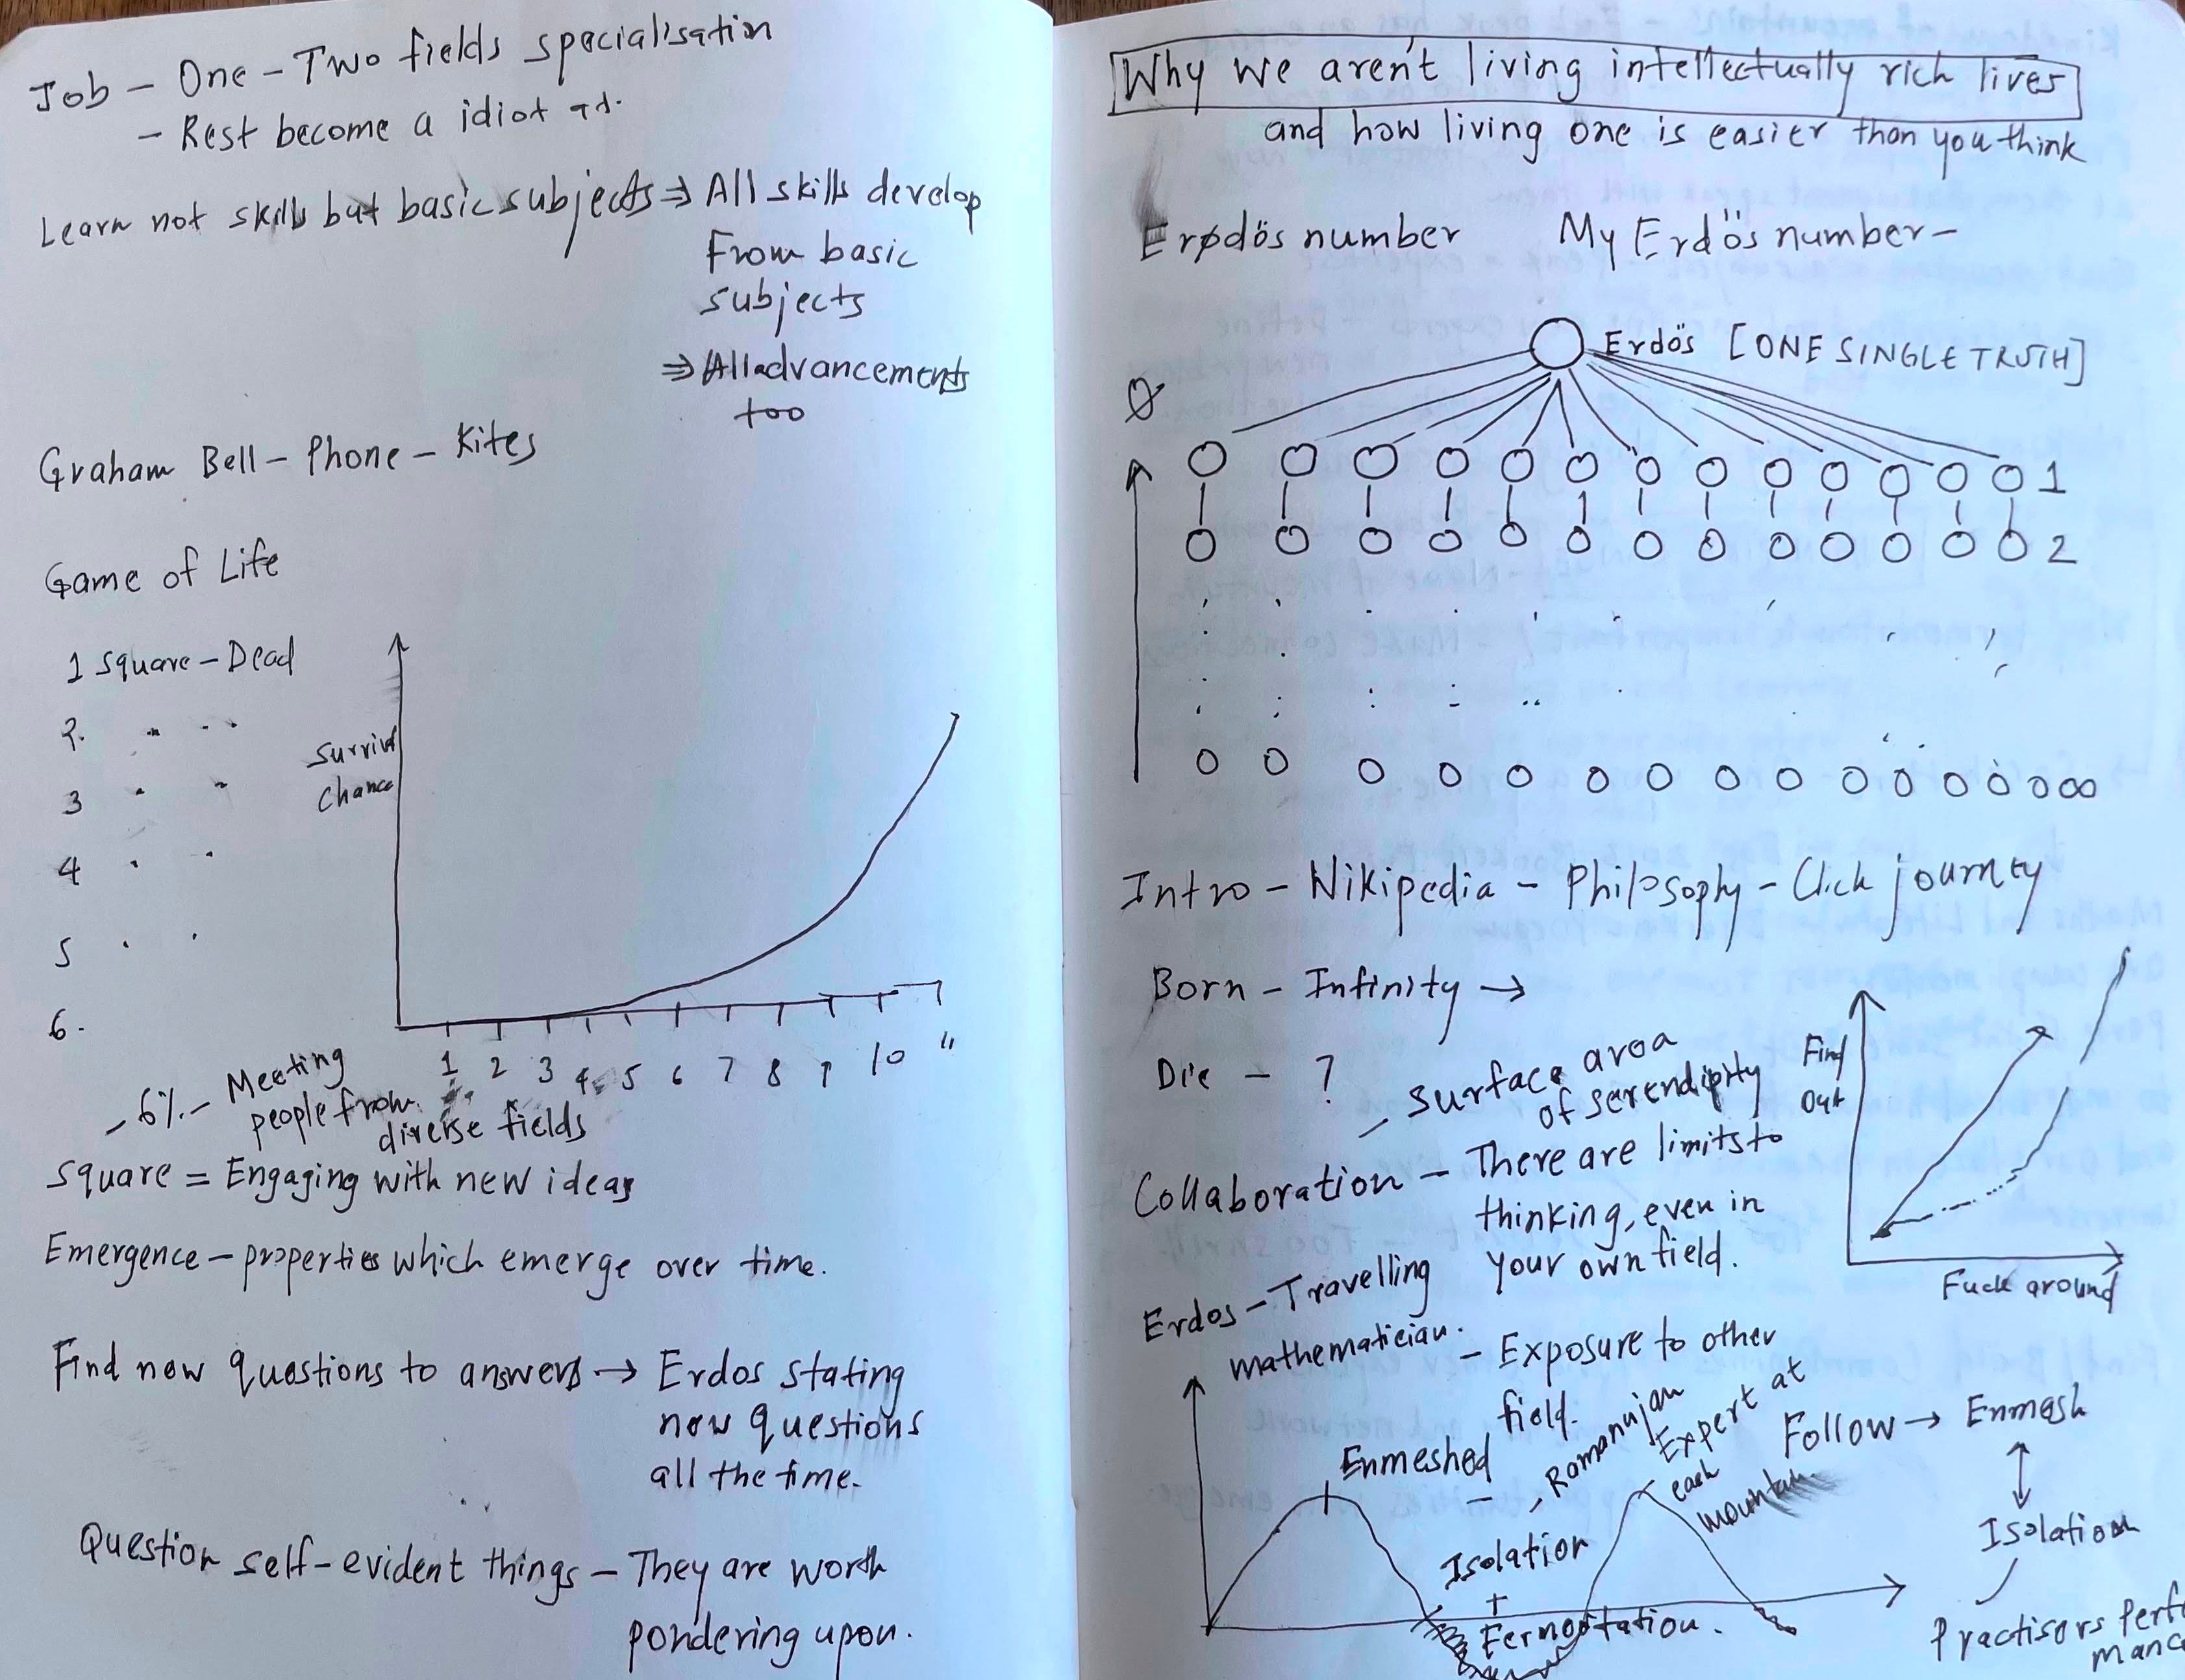 Job - One - Two fields specialisatin
- Rest become a idiot
Learn not skills but basic subjects ⇒ All skills develop
From basic
subjects
⇒ All advancements
too
Graham Bell - Phone - Kites
Game of Life
1 square - Dead
2. " "
3 " "
4 " "
5 " "
6.
Survival
Chance
1 2 3 4 5 6 7 8 9 10 "
6% - Meeting
people from
diverse fields
Square = Engaging with new ideas
Emergence - properties which emerge over time.
Find new questions to answers → Erdos stating
new questions
all the time.
Question self-evident things - They are worth
pondering upon.
Why we aren't living intellectually rich lives
and how living one is easier than you think
Erdös number My Erdös number -
Erdös [ONE SINGLE TRUTH]
0
1
2
∞
Intro - Wikipedia - Philosophy - Click journey
Born - Infinity →
Die - ?
- Surface area
of serendipity
Find
Out
Fuck around
Collaboration - There are limits to
thinking, even in
your own field.
Erdos - Travelling
mathematician.
- Exposure to other
field.
Enmeshed
- , Ramanujan
Expert at
each
mountain
Follow → Enmesh
Isolation
Isolation
+
Fermentation.
Practisers Perf
manc